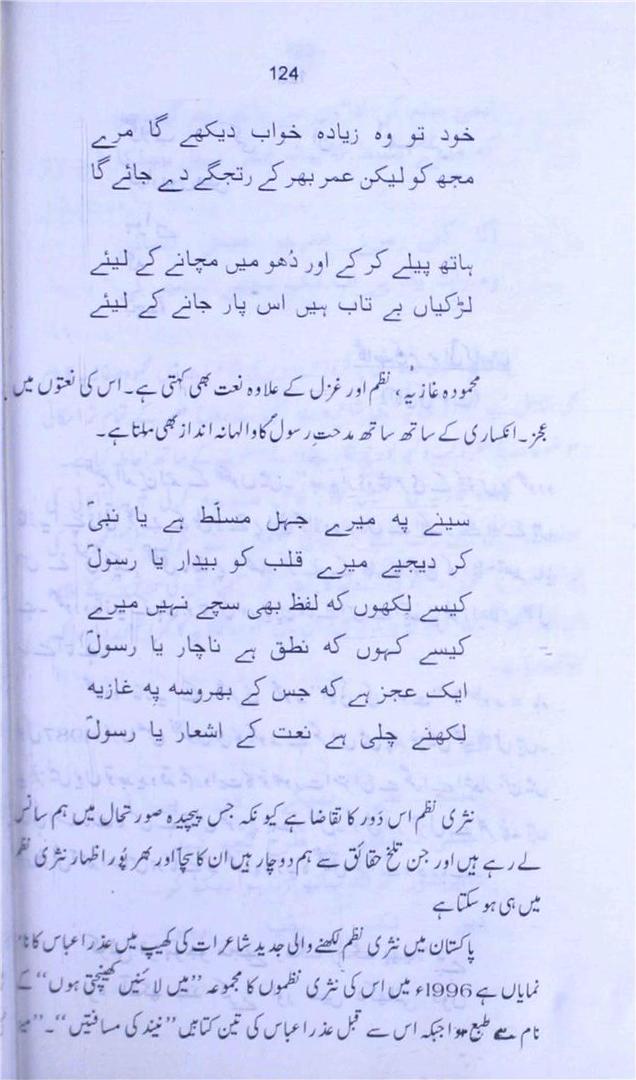 124
خود تو وہ زیادہ خواب دیکھے گا مرے
مجھ کو لیکن عمر بھر کے رتجگے دے جائے گا
ہاتھ پیلے کر کے اور دُھو میں مچانے کے لیئے
لڑکیاں بے تاب ہیں اس پار جانے کے لیئے
محمودہ غازیہ، نظم اور غزل کے علاوہ نعت بھی کہتی ہے۔ اس کی نعتوں میں
عجز۔ انکساری کے ساتھ ساتھ مدحتِ رسولؐ کا والہانہ انداز بھی ملتا ہے۔
سینے پہ میرے جہل مسلّط ہے یا نبیؐ
کر دیجیے میرے قلب کو بیدار یا رسولؐ
کیسے لکھوں کہ لفظ بھی سچے نہیں میرے
کیسے کہوں کہ نطق ہے ناچار یا رسولؐ
ایک عجز ہے کہ جس کے بھروسہ پہ غازیہ
لکھنے چلی ہے نعت کے اشعار یا رسولؐ
نثری نظم اس دَور کا تقاضا ہے کیونکہ جس پیچیدہ صورتحال میں ہم سانس
لے رہے ہیں اور جن تلخ حقائق سے ہم دوچار ہیں ان کا سچّا اور بھر پُور اظہار نثری
میں ہی ہو سکتا ہے
پاکستان میں نثری نظم لکھنے والی جدید شاعرات کی کھیپ میں عذرا عباس کا
نمایاں ہے 1996ء میں اس کی نثری نظموں کا مجموعہ ”میں لائنیں کھینچتی ہوں“ کے
نام سے طبع ہوا جبکہ اس سے قبل عذرا عباس کی تین کتابیں ”نیند کی مسافتیں“۔”